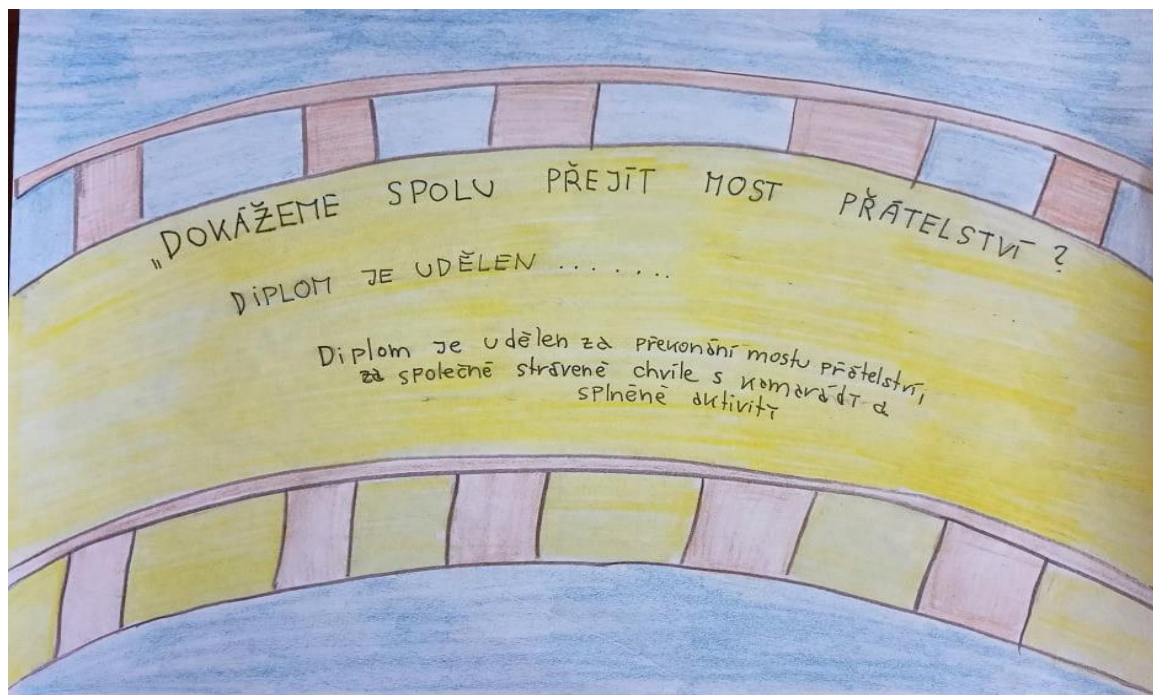 „DOKÁŽEME SPOLU PŘEJÍT MOST PŘÁTELSTVÍ ?
DIPLOM JE UDĚLEN .......
Diplom je udělen za překonání mostu přátelství,
za společné strávené chvíle s kamarády a
splněné aktivity